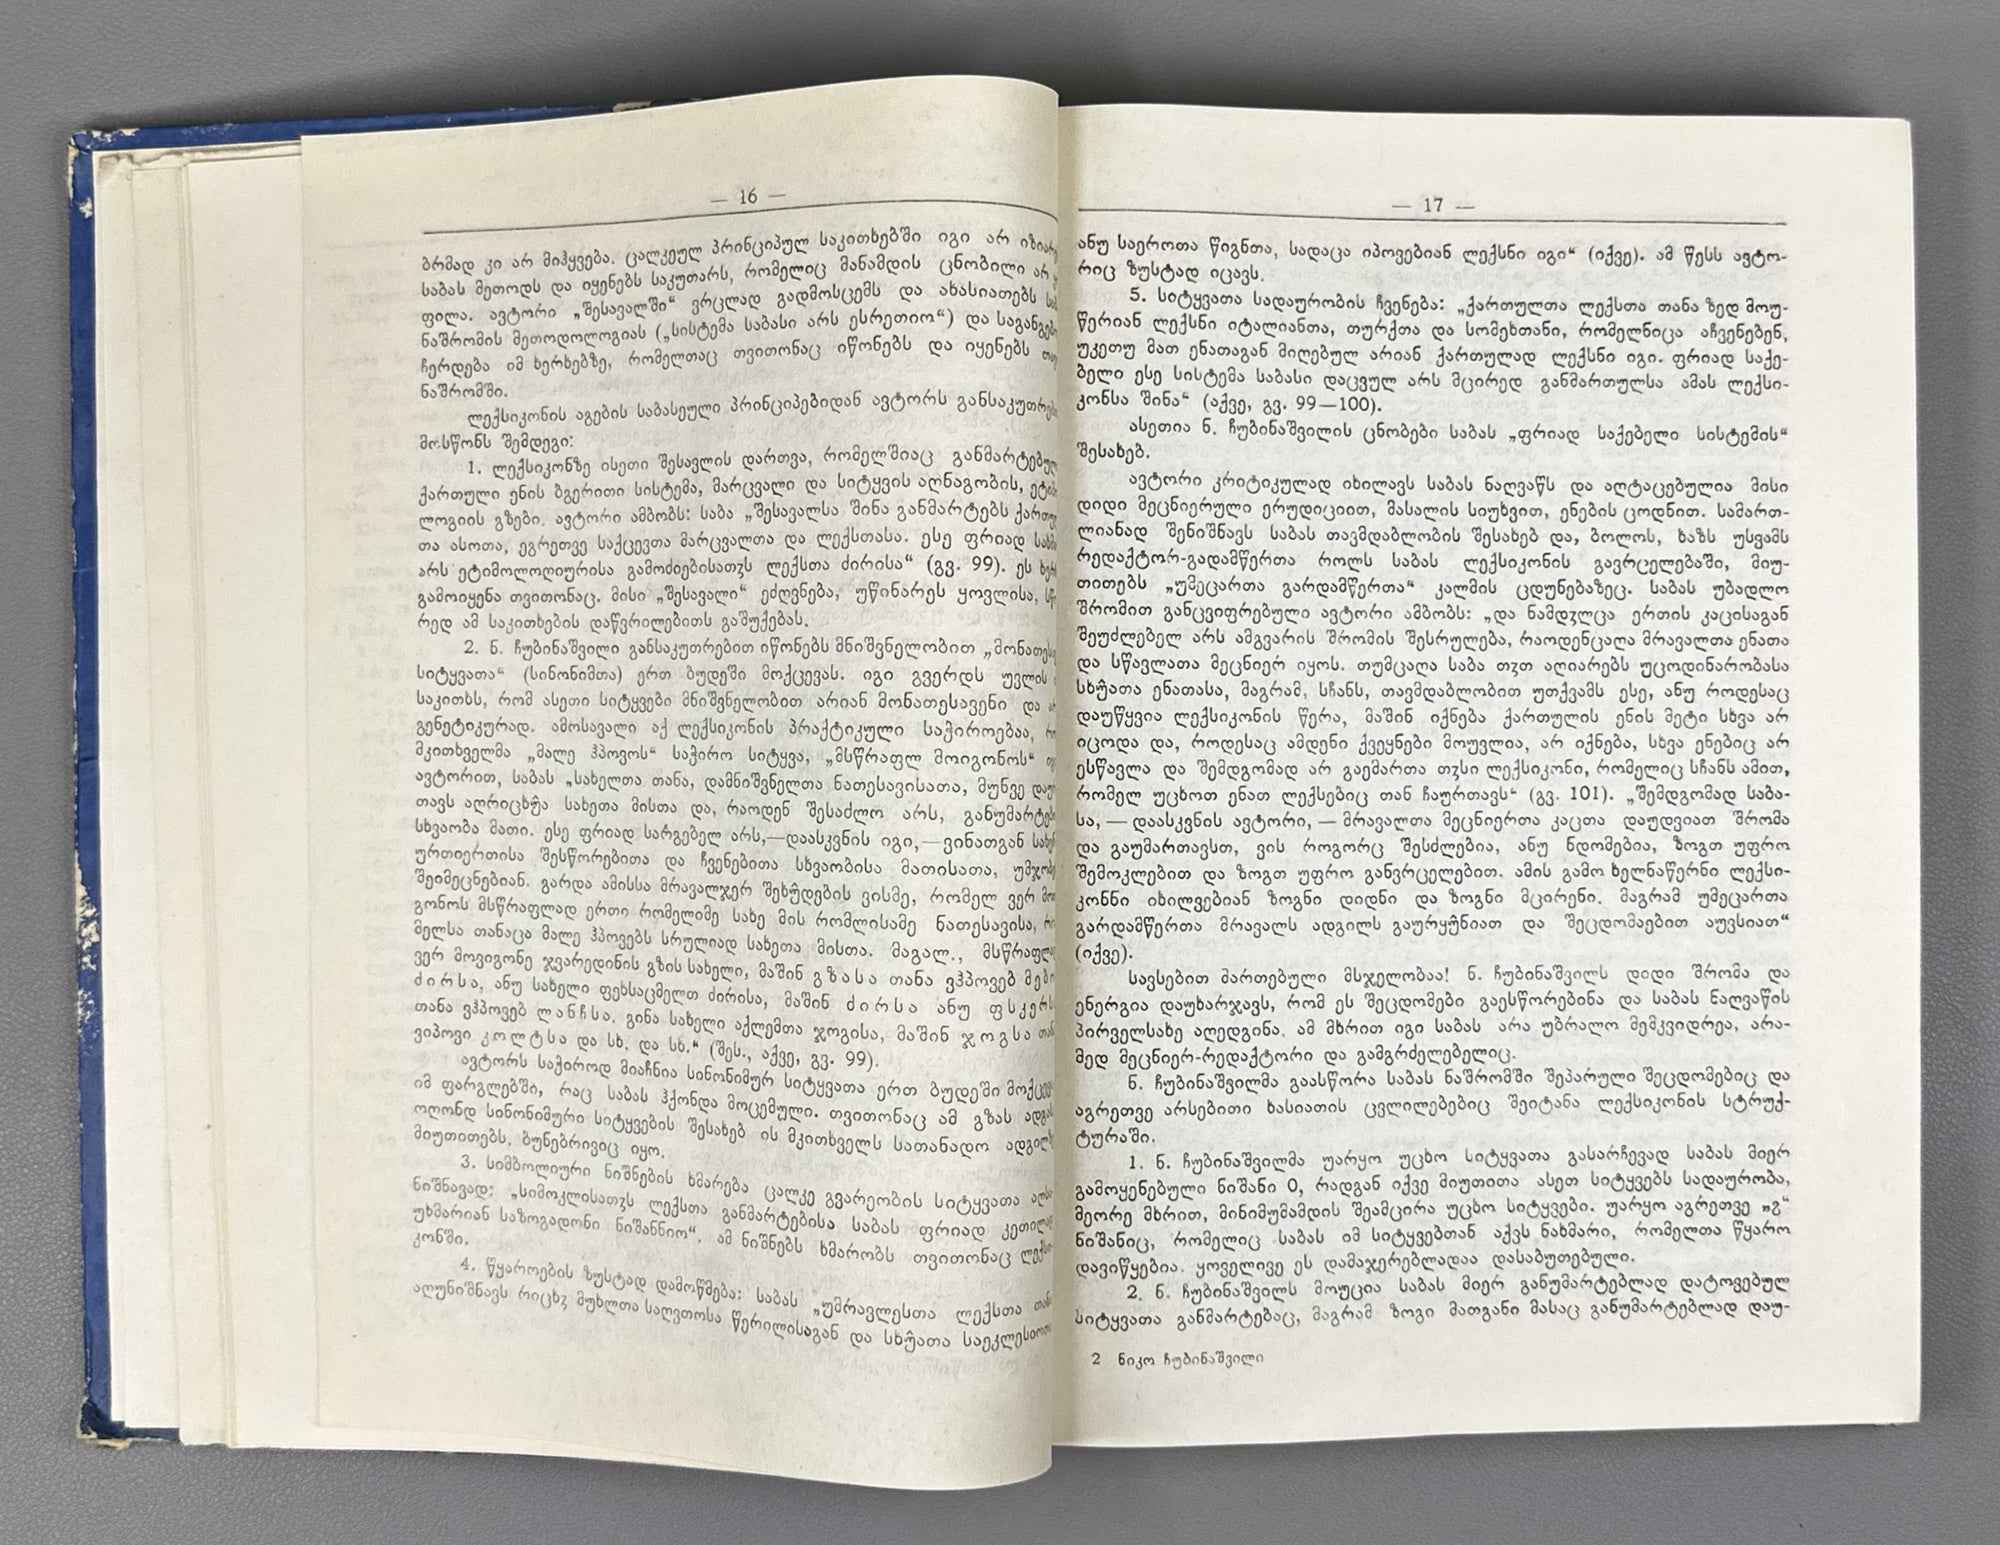 — 16 —
ბრმად კი არ მიჰყვება. ცალკეულ პრინციპულ საკითხებში იგი არ
საბას მეთოდს და იყენებს საკუთარს, რომელიც მანამდის ცნობილი არ
ფილა. ავტორი „შესავალში“ ვრცლად გადმოსცემს და ახასიათებს
ნაშრომის მეთოდოლოგიას („სისტემა საბასი არს ესრეთიო“) და
ჩერდება იმ ხერხებზე, რომელთაც თვითონაც იწონებს და იყენებს
ნაშრომში.
ლექსიკონის აგების საბასეული პრინციპებიდან ავტორს
მოსწონს შემდეგი:
1. ლექსიკონზე ისეთი შესავლის დართვა, რომელშიაც
ქართული ენის ბგერითი სისტემა, მარცვალი და სიტყვის აღნაგობის,
ლოგიის გზები. ავტორი ამბობს: საბა „შესავალსა შინა განმარტებს
თა ასოთა, ეგრეთვე საქცევთა მარცვალთა და ლექსთასა. ესე ფრიად
არს ეტიმოლოღიურისა გამოძიებისათჳს ლექსთა ძირისა“ (გვ. 99). ეს
გამოიყენა თვითონაც. მისი „შესავალი“ ეძღვნება, უწინარეს ყოვლისა,
რედ ამ საკითხების დაწვრილებითს გაშუქებას.
2. ნ. ჩუბინაშვილი განსაკუთრებით იწონებს მნიშვნელობით
სიტყვათა“ (სინონიმთა) ერთ ბუდეში მოქცევას. იგი გვერდს უვლის
საკითხს, რომ ასეთი სიტყვები მნიშვნელობით არიან მონათესავენი და
გენეტიკურად. ამოსავალი აქ ლექსიკონის პრაქტიკული საჭიროებაა,
მკითხველმა „მალე ჰპოვოს“ საჭირო სიტყვა, „მსწრაფლ მოიგონოს“
ავტორით, საბას „სახელთა თანა, დამნიშვნელთა ნათესავისათა, მუნვე
თავს აღრიცხჳა სახეთა მისთა და, რაოდენ შესაძლო არს,
სხვაობა მათი. ესე ფრიად სარგებელ არს,—დაასკვნის იგი,—ვინათგან
ურთიერთისა შესწორებითა და ჩვენებითა სხვაობისა მათისათა,
შეიმეცნებიან. გარდა ამისსა მრავალჯერ შეხჳდების ვისმე, რომელ ვერ
გონოს მსწრაფლად ერთი რომელიმე სახე მის რომლისამე ნათესავისა,
მელსა თანაცა მალე ჰპოვებს სრულიად სახეთა მისთა. მაგალ.,
ვერ მოვიგონე ჯვარედინის გზის სახელი, მაშინ გზასა თანა ვჰპოვებ
ძირსა, ანუ სახელი ფეხსაცმელთ ძირისა, მაშინ ძირსა ანუ
თანა ვჰპოვებ ლანჩსა. გინა სახელი აქლემთა ჯოგისა, მაშინ ჯოგსა
ვიპოვი კოლტსა და სხ. და სხ.“ (შეს., აქვე, გვ. 99).
ავტორს საჭიროდ მიაჩნია სინონიმურ სიტყვათა ერთ ბუდეში
იმ ფარგლებში, რაც საბას ჰქონდა მოცემული. თვითონაც ამ გზას
ოღონდ სინონიმური სიტყვების შესახებ ის მკითხველს სათანადო
მიუთითებს. ბუნებრივიც იყო.
3. სიმბოლიური ნიშნების ხმარება ცალკე გვარეობის სიტყვათა
ნიშნავად: „სიმოკლისათჳს ლექსთა განმარტებისა საბას ფრიად
უხმარიან საზოგადონი ნიშანნიო“. ამ ნიშნებს ხმარობს თვითონაც
კონში.
4. წყაროების ზუსტად დამოწმება: საბას „უმრავლესთა ლექსთა
აღუნიშნავს რიცხჳ მუხლთა საღვთოსა წერილისაგან და სხჳათა
— 17 —
ანუ საეროთა წიგნთა, სადაცა იპოვებიან ლექსნი იგი“ (იქვე). ამ წესს ავტო-
რიც ზუსტად იცავს.
5. სიტყვათა სადაურობის ჩვენება: „ქართულთა ლექსთა თანა ზედ მოუ-
წერიან ლექსნი იტალიანთა, თურქთა და სომეხთანი, რომელნიცა აჩვენებენ,
უკეთუ მათ ენათაგან მიღებულ არიან ქართულად ლექსნი იგი. ფრიად საქე-
ბელი ესე სისტემა საბასი დაცვულ არს მცირედ განმართულსა ამას ლექსი-
კონსა შინა“ (აქვე, გვ. 99—100).
ასეთია ნ. ჩუბინაშვილის ცნობები საბას „ფრიად საქებელი სისტემის“
შესახებ.
ავტორი კრიტიკულად იხილავს საბას ნაღვაწს და აღტაცებულია მისი
დიდი მეცნიერული ერუდიციით, მასალის სიუხვით, ენების ცოდნით. სამართ-
ლიანად შენიშნავს საბას თავმდაბლობის შესახებ და, ბოლოს, ხაზს უსვამს
რედაქტორ-გადამწერთა როლს საბას ლექსიკონის გავრცელებაში, მიუ-
თითებს „უმეცართა გარდამწერთა“ კალმის ცდუნებაზეც. საბას უბადლო
შრომით განცვიფრებული ავტორი ამბობს: „და ნამდჳლცა ერთის კაცისაგან
შეუძლებელ არს ამგვარის შრომის შესრულება, რაოდენცაღა მრავალთა ენათა
და სწავლათა მეცნიერ იყოს. თუმცაღა საბა თჳთ აღიარებს უცოდინარობასა
სხჳათა ენათასა, მაგრამ, სჩანს, თავმდაბლობით უთქვამს ესე, ანუ როდესაც
დაუწყვია ლექსიკონის წერა, მაშინ იქნება ქართულის ენის მეტი სხვა არ
იცოდა და, როდესაც ამდენი ქვეყნები მოუვლია, არ იქნება, სხვა ენებიც არ
ესწავლა და შემდგომად არ გაემართა თჳსი ლექსიკონი, რომელიც სჩანს ამით,
რომელ უცხოთ ენათ ლექსებიც თან ჩაურთავს“ (გვ. 101). „შემდგომად საბა-
სა, — დაასკვნის ავტორი, — მრავალთა მეცნიერთა კაცთა დაუდვიათ შრომა
და გაუმართავსთ, ვის როგორც შესძლებია, ანუ ნდომებია, ზოგთ უფრო
შემოკლებით და ზოგთ უფრო განვრცელებით. ამის გამო ხელნაწერნი ლექსი-
კონნი იხილვებიან ზოგნი დიდნი და ზოგნი მცირენი. მაგრამ უმეცართა
გარდამწერთა მრავალს ადგილს გაურყჳნიათ და შეცდომაებით აუვსიათ“
(იქვე).
სავსებით მართებული მსჯელობაა! ნ. ჩუბინაშვილს დიდი შრომა და
ენერგია დაუხარჯავს, რომ ეს შეცდომები გაესწორებინა და საბას ნაღვაწის
პირველსახე აღედგინა. ამ მხრით იგი საბას არა უბრალო მემკვიდრეა, არა-
მედ მეცნიერ-რედაქტორი და გამგრძელებელიც.
ნ. ჩუბინაშვილმა გაასწორა საბას ნაშრომში შეპარული შეცდომებიც და
აგრეთვე არსებითი ხასიათის ცვლილებებიც შეიტანა ლექსიკონის სტრუქ-
ტურაში.
1. ნ. ჩუბინაშვილმა უარყო უცხო სიტყვათა გასარჩევად საბას მიერ
გამოყენებული ნიშანი 0, რადგან იქვე მიუთითა ასეთ სიტყვებს სადაურობა,
მეორე მხრით, მინიმუმამდის შეამცირა უცხო სიტყვები. უარყო აგრეთვე „გ“
ნიშანიც, რომელიც საბას იმ სიტყვებთან აქვს ნახმარი, რომელთა წყარო
დავიწყებია. ყოველივე ეს დამაჯერებლადაა დასაბუთებული.
2. ნ. ჩუბინაშვილს მოუცია საბას მიერ განუმარტებლად დატოვებულ
სიტყვათა განმარტებაც, მაგრამ ზოგი მათგანი მასაც განუმარტებლად დაუ-
2 ნიკო ჩუბინაშვილი